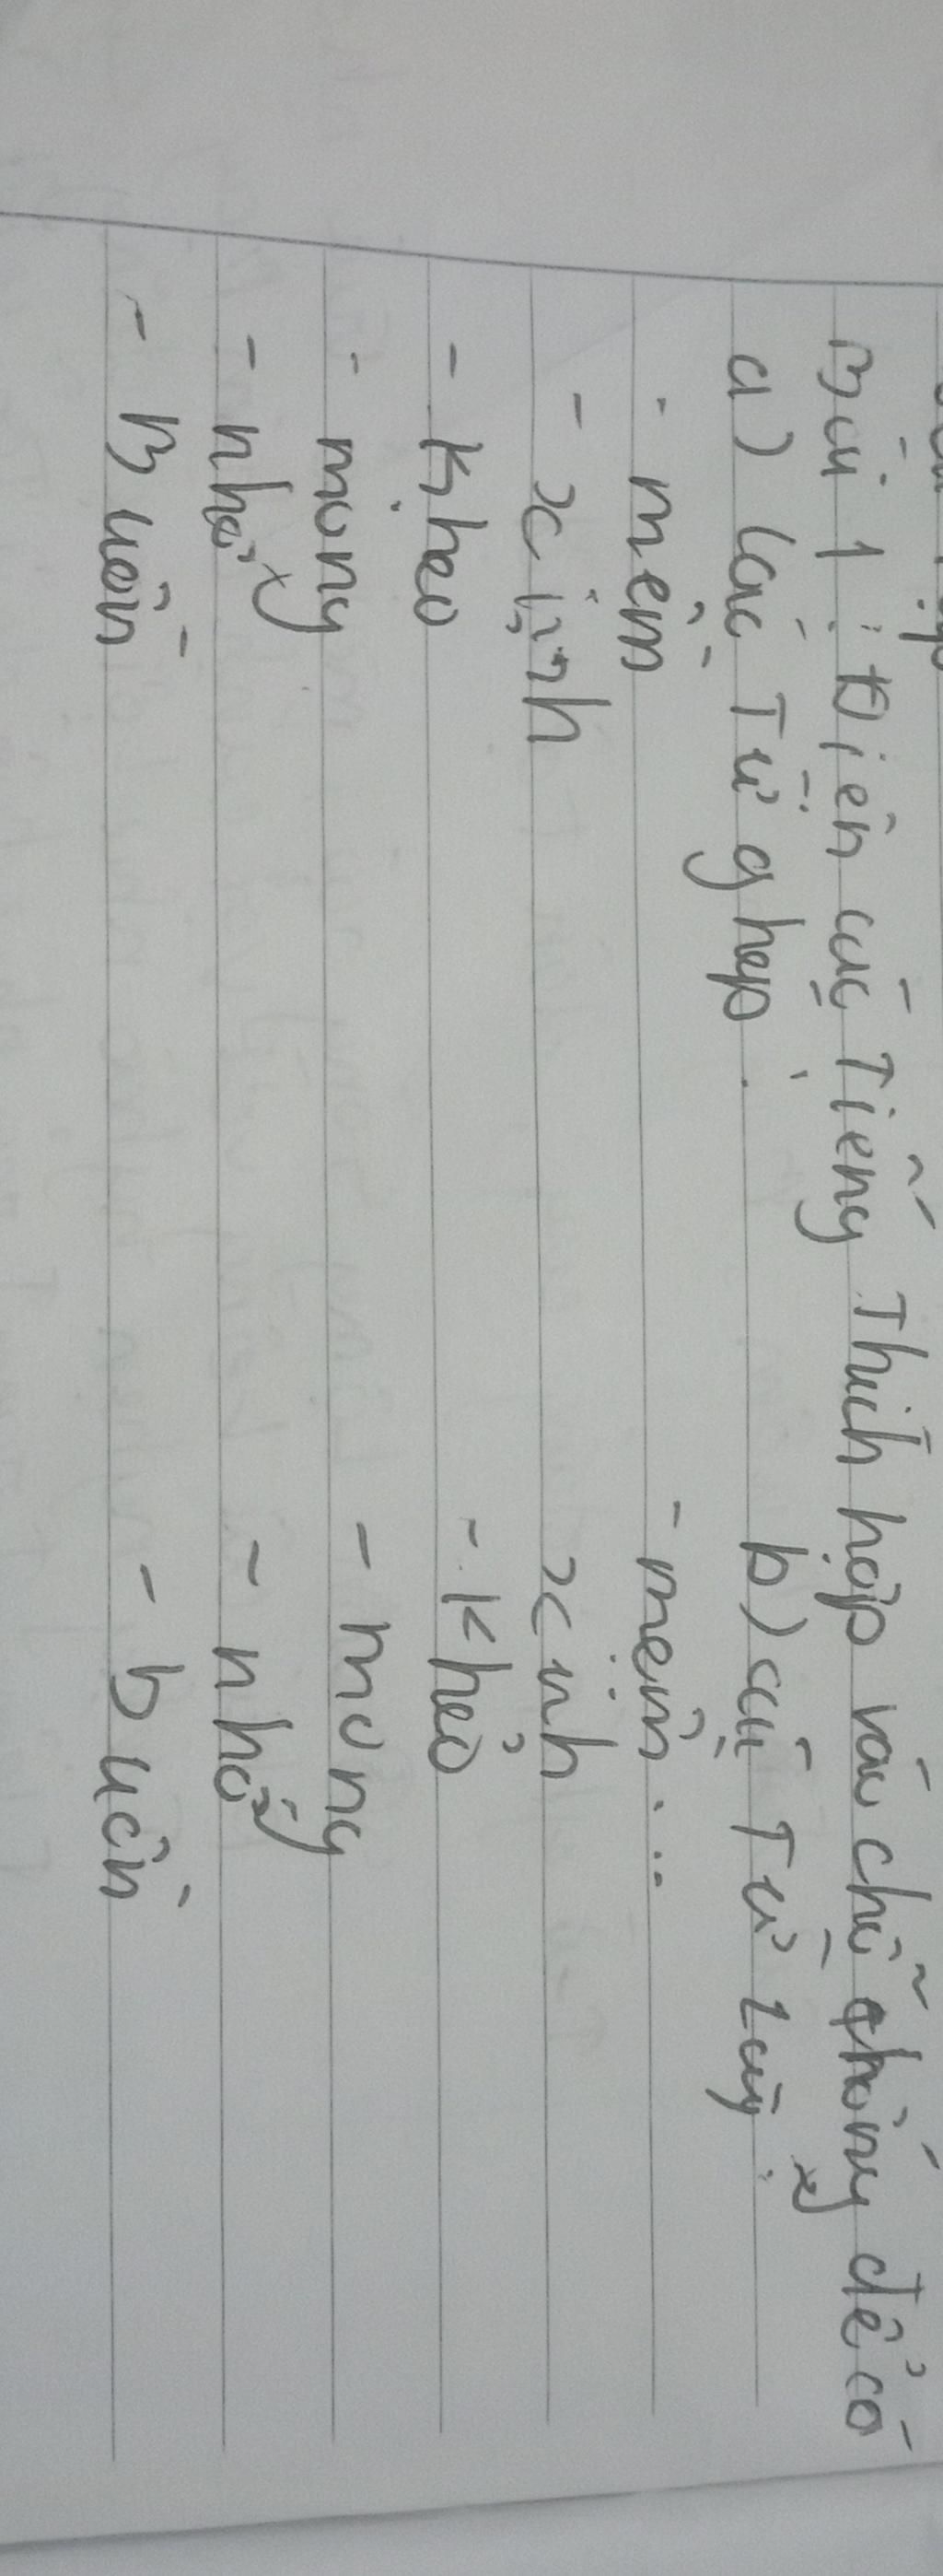 Bài 1: Điền các Tiếng Thích hợp vào chỗ chống để có
a) Các Từ ghép. b) các Từ Láy:
- mềm - mềm...
- xinh xinh
- khéo - khéo
- mong - mong
- nhảy - nhảy
- Buồn - buồn